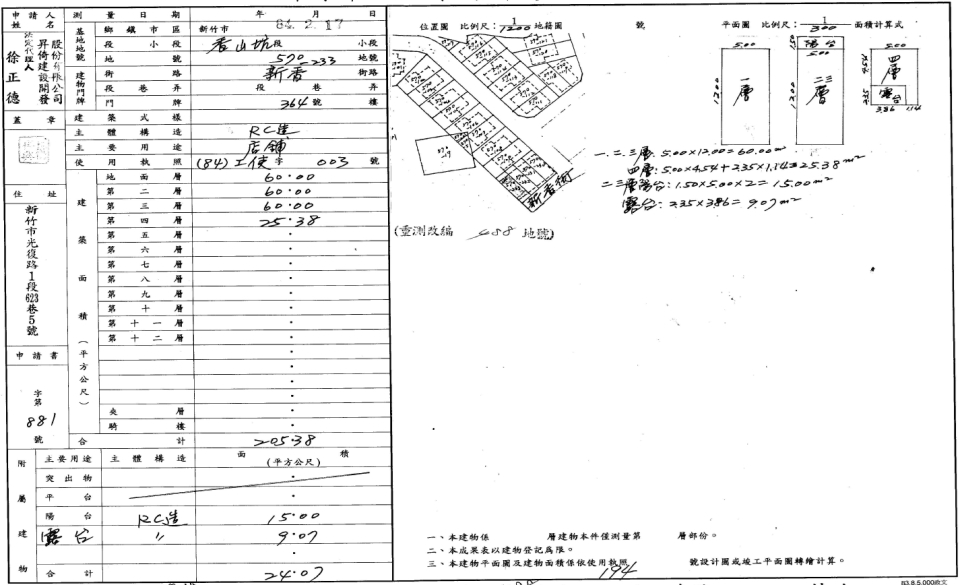 申請人姓名
法定代理人
昇倚建設開發股份有限公司
徐正德
蓋章
住址
新竹市光復路1段623巷5號
申請書
字第
881
號
測量日期 年 月 日
84. 2. 17
基地地號
鄉鎮市區 新竹市
段小段 香山坑段 小段
地號 570-233 地號
建物門牌
街路 新香 街路
段巷弄 段 巷 弄
門牌 364號 樓
建築式樣
主體構造 RC造
主要用途 店舖
使用執照 (84)工使字 003 號
建築面積(平方公尺)
地面層 60.00
第二層 60.00
第三層 60.00
第四層 25.38
第五層 .
第六層 .
第七層 .
第八層 .
第九層 .
第十層 .
第十一層 .
第十二層 .
夾層 .
騎樓 .
合計 205.38
附屬建物
主要用途 主體構造 面積
(平方公尺)
突出物
平台
陽台 RC造 15.00
露台 〃 9.07
合計 24.07
位置圖 比例尺:1/1200 地籍圖 號
新香街
(重測改編 488 地號)
平面圖 比例尺:1/300 面積計算式
5.00
12.00
一層
1.50
陽台
5.00
12.00
二三層
5.00
4.54
四層
2.35
露台
3.86 1.14
一.二.三層: 5.00×12.00=60.00m²
四層: 5.00×4.54+2.35×1.14=25.38m²
二三層陽台: 1.50×5.00×2=15.00m²
露台: 2.35×3.86=9.07m²
一、本建物係 層建物本件僅測量第 層部份。
二、本成果表以建物登記為限。
三、本建物平面圖及建物面積係依使用執照 194 號設計圖或竣工平面圖轉繪計算。
83.8.5,000